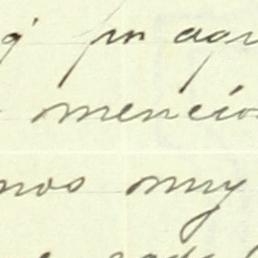 q' por aqu
mencio
mos muy